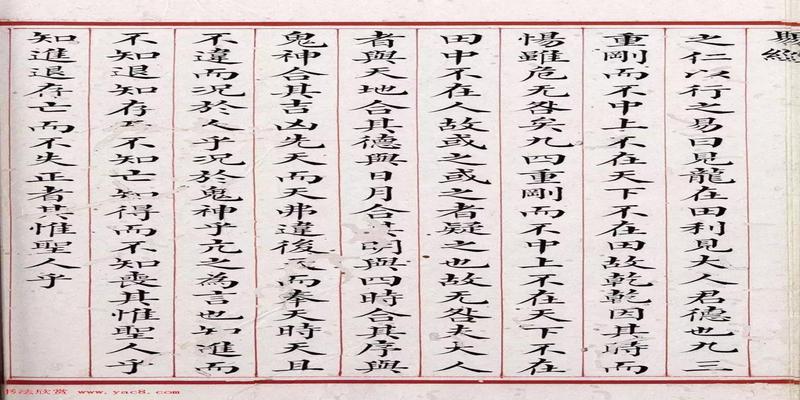 聖經
之仁以行之易曰見龍在田利見大人君德也九三
重剛而不中上不在天下不在田故乾乾因其時而
惕雖危无咎矣九四重剛而不中上不在天下不在
田中不在人故或之或之者疑之也故无咎夫大人
者與天地合其德與日月合其明與四時合其序與
鬼神合其吉凶先天而天弗違後天而奉天時天且
不違而況於人乎況於鬼神乎亢之為言也知進而
不知退知存而不知亡知得而不知喪其惟聖人乎
知進退存亡而不失正者其惟聖人乎
书法欣赏 www.yac8.com